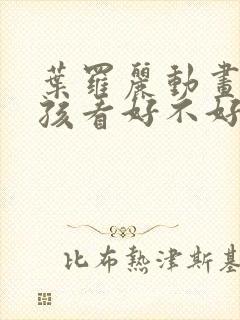 葉羅麗動畫
孩看好不好
比布熱津斯基